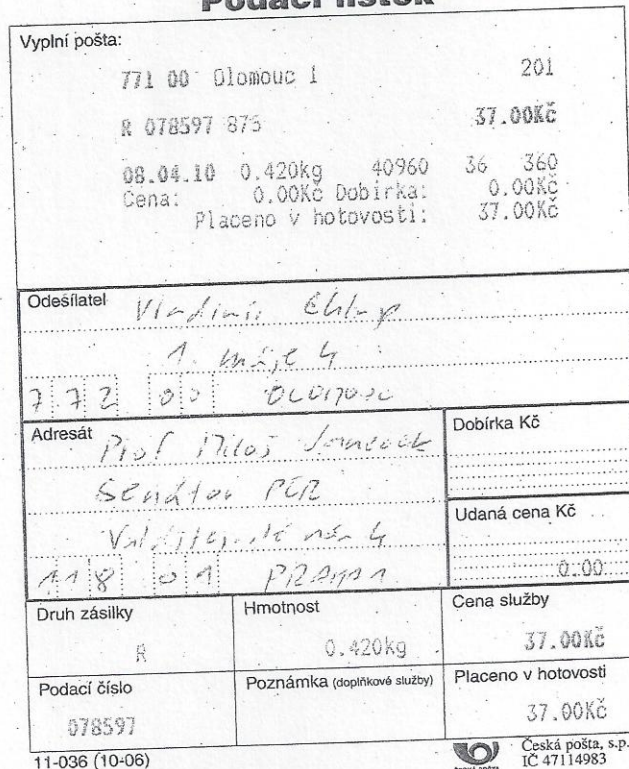 Podací lístek
Vyplní pošta:
771 00 Olomouc 1 201
R 078597 875 37.00Kč
08.04.10 0.420kg 40960 36 360
Cena: 0.00Kč Dobírka: 0.00Kč
Placeno v hotovosti: 37.00Kč
Odesílatel Vladimír
1. máje 4
772 00 OLOMOUC
Adresát Prof Miloš
Senátor PČR
nám 4
118 01 PRAHA 1
Dobírka Kč
Udaná cena Kč
0.00
Druh zásilky
R
Hmotnost
0.420kg
Cena služby
37.00Kč
Podací číslo
078597
Poznámka (doplňkové služby)
Placeno v hotovosti
37.00Kč
11-036 (10-06)
Česká pošta, s.p.
IČ 47114983